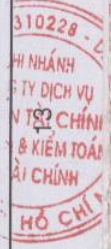 310228 -
HI NHÁNH
TY DỊCH VỤ
N TÀI CHÍNH
& KIỂM TOÁN
ÀI CHÍNH
HỒ CHÍ